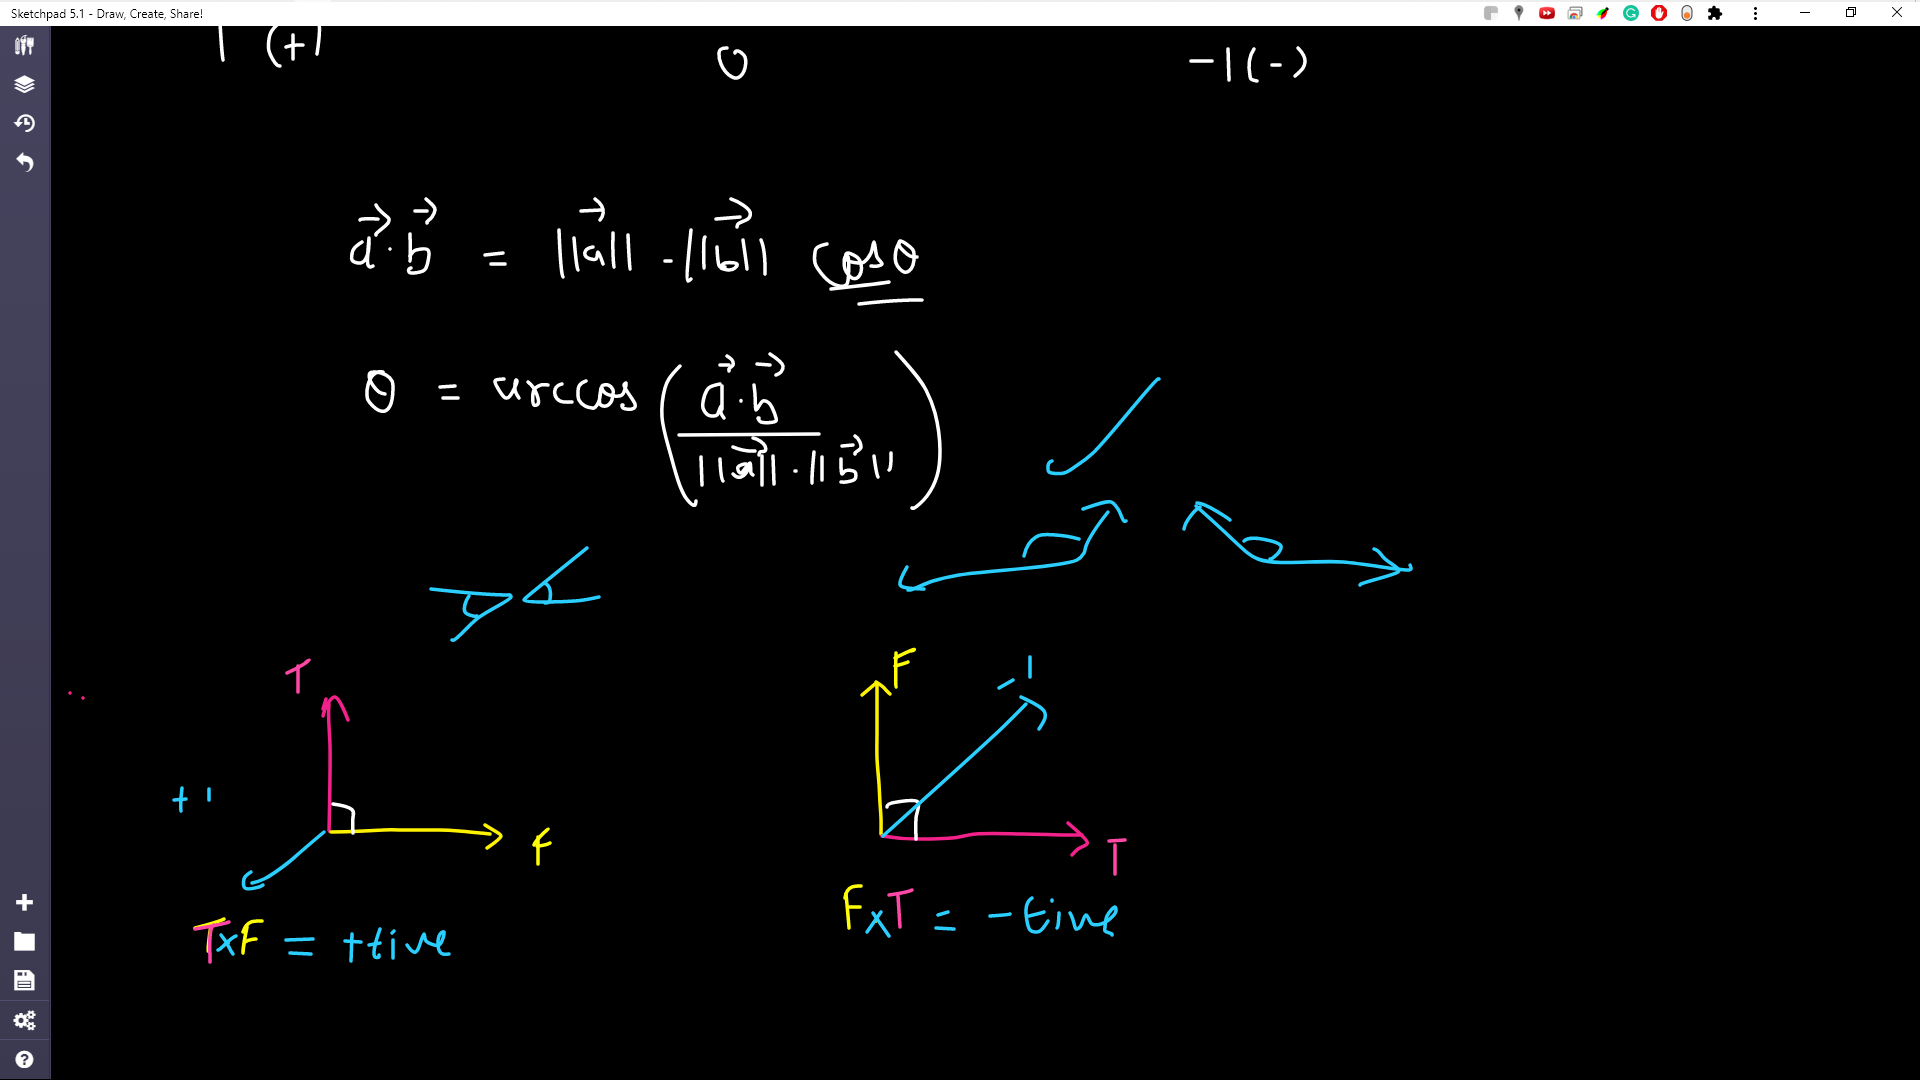 Sketchpad 5.1 - Draw, Create, Share!
1 (+) 0 -1 (-)
a⃗ · b⃗ = ||a⃗|| - ||b⃗|| cosθ
θ = arccos ( a⃗ · b⃗ / ||a⃗|| · ||b⃗|| )
T F -1
+1
F T
FxT = -tive
TxF = +tive